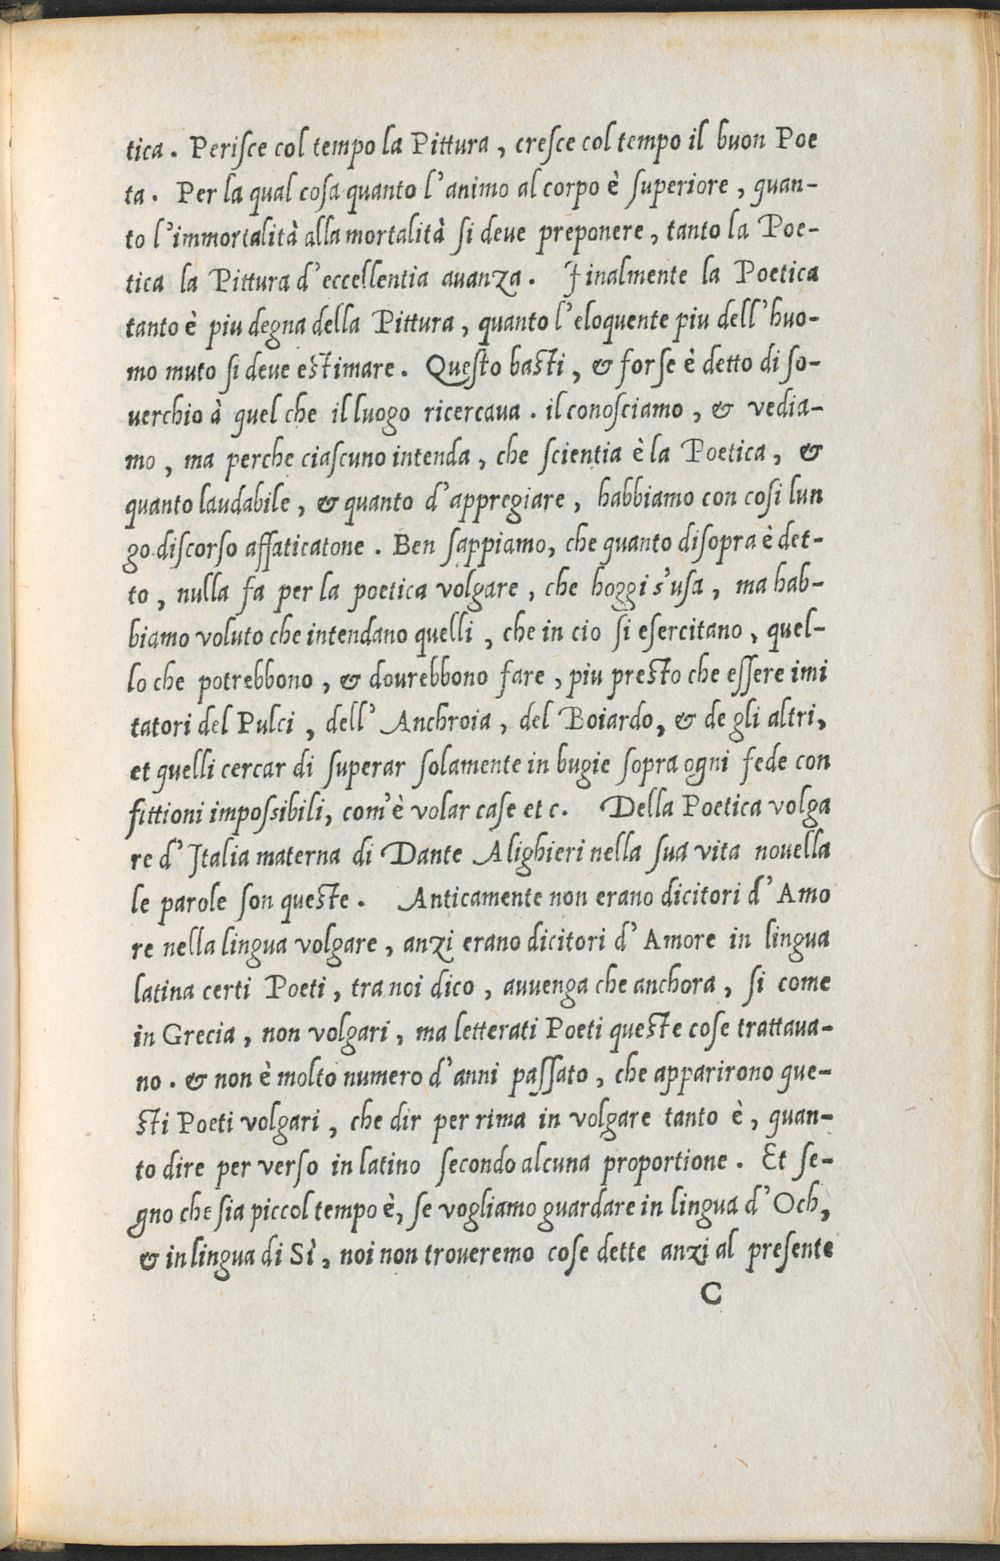 tica. Perisce col tempo la Pittura, cresce col tempo il buon Poe
ta. Per la qual cosa quanto l'animo al corpo è superiore, quan-
to l'immortalità alla mortalità si deve preponere, tanto la Poe-
tica la Pittura d'eccellentia auanza. Finalmente la Poetica
tanto è piu degna della Pittura, quanto l'eloquente piu dell'huo-
mo muto si deue estimare. Questo basti, & forse è detto di so-
uerchio à quel che il luogo ricercaua. il conosciamo, & vedia-
mo, ma perche ciascuno intenda, che scientia è la Poetica, &
quanto laudabile, & quanto d'appregiare, habbiamo con cosi lun
go discorso affaticatone. Ben sappiamo, che quanto disopra è det-
to, nulla fa per la poetica volgare, che hoggi s'usa, ma hab-
biamo voluto che intendano quelli, che in cio si esercitano, quel-
lo che potrebbono, & dourebbono fare, piu presto che essere imi
tatori del Pulci, dell' Anchroia, del Boiardo, & de gli altri,
et quelli cercar di superar solamente in bugie sopra ogni fede con
fittioni impossibili, com'è volar case et c. Della Poetica volga
re d'Italia materna di Dante Alighieri nella sua vita nouella
le parole son queste. Anticamente non erano dicitori d'Amo
re nella lingua volgare, anzi erano dicitori d'Amore in lingua
latina certi Poeti, tra noi dico, auuenga che anchora, si come
in Grecia, non volgari, ma letterati Poeti queste cose trattaua-
no. & non è molto numero d'anni passato, che apparirono que-
sti Poeti volgari, che dir per rima in volgare tanto è, quan-
to dire per verso in latino secondo alcuna proportione. Et se-
gno che sia piccol tempo è, se vogliamo guardare in lingua d'Och,
& in lingua di Sì, noi non troueremo cose dette anzi al presente
C